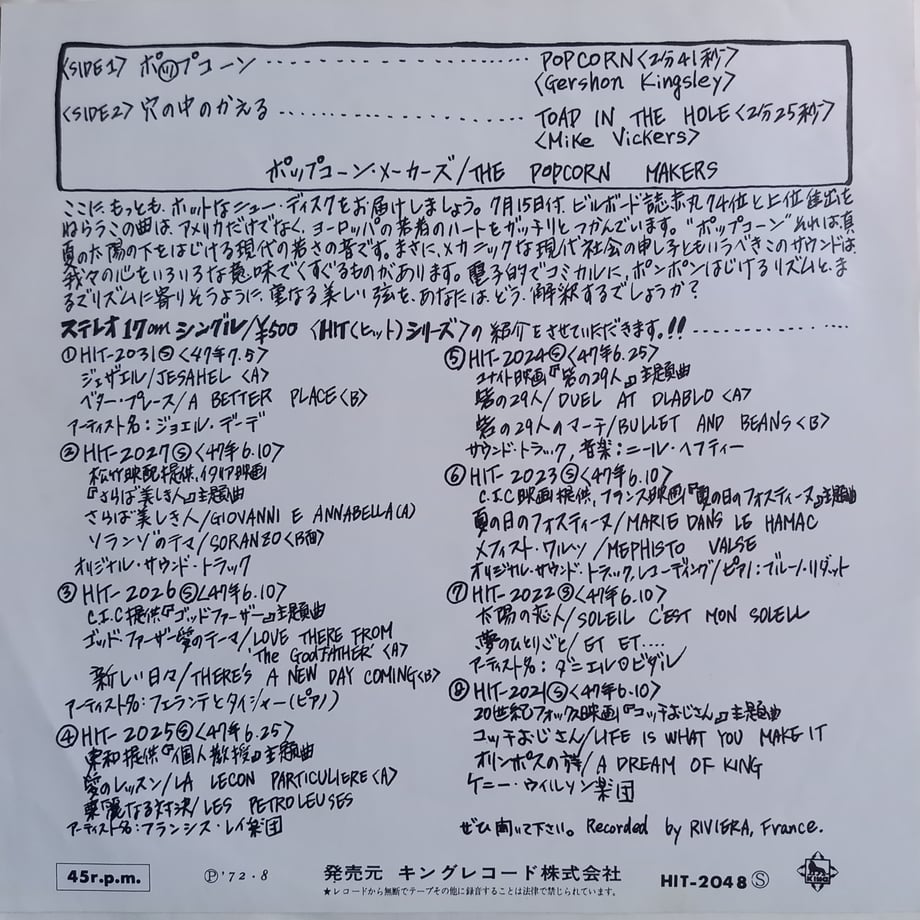 〈SIDE1〉 ポップコーン ‥‥‥‥‥‥‥‥‥‥ POPCORN〈2分41秒〉
〈Gershon Kingsley〉
〈SIDE2〉 穴の中のかえる ‥‥‥‥‥‥‥‥‥‥ TOAD IN THE HOLE〈2分25秒〉
〈Mike Vickers〉
ポップコーン・メーカーズ/THE POPCORN MAKERS
ここに、もっとも、ホットなニュー・ディスクをお届けしましょう。7月15日付、ビルボード誌赤丸74位と上位進出を
ねらうこの曲は、アメリカだけでなく、ヨーロッパの若者のハートをガッチリとつかんでいます。"ポップコーン"それは、真
夏の太陽の下をはじける現代の若さの音です。まさに、メカニックな現代社会の申し子ともいうべきこのサウンドは、
我々の心をいろいろな意味でくすぐるものがあります。電子的でコミカルに、ポンポンはじけるリズムと、ま
るでリズムに寄りそうように、重なる美しい弦を、あなたは、どう、解釈するでしょうか?
ステレオ17cmシングル/¥500 〈HIT(ヒット)シリーズ〉の紹介をさせていただきます。!! ‥‥‥‥‥‥
①HIT-2031Ⓢ〈47年7.5〉
ジェザエル/JESAHEL〈A〉
ベター・プレース/A BETTER PLACE〈B〉
アーティスト名:ジョエル・デーデ
②HIT-2027Ⓢ〈47年6.10〉
松竹映配提供、イタリア映画
『さらば美しき人』主題曲
さらば美しき人/GIOVANNI E ANNABELLA(A)
ソランゾのテマ/SORANZO〈B面〉
オリジナル・サウンド・トラック
③HIT-2026Ⓢ〈47年6.10〉
C.I.C提供『ゴッドファーザー』主題曲
ゴッド・ファーザー愛のテーマ/LOVE THERE FROM
'The GodFATHER'〈A〉
新しい日々/THERE'S A NEW DAY COMING〈B〉
アーティスト名:フェランテとタイシャー(ピアノ)
④HIT-2025Ⓢ〈47年6.25〉
東和提供『個人教授』主題曲
愛のレッスン/LA LECON PARTICULIERE〈A〉
華麗なる対決/LES PETROLEUSES
アーティスト名:フランシス・レイ楽団
⑤HIT-2024Ⓢ〈47年6.25〉
ユナイト映画『砦の29人』主題曲
砦の29人/DUEL AT DIABLO〈A〉
砦の29人のマーチ/BULLET AND BEANS〈B〉
サウンド・トラック、音楽:ニール・ヘフティー
⑥HIT-2023Ⓢ〈47年6.10〉
C.I.C映画提供、フランス映画『夏の日のフォスティーヌ』主題曲
夏の日のフォスティーヌ/MARIE DANS LE HAMAC
メフィスト・ワルツ/MEPHISTO VALSE
オリジナル・サウンド・トラック、レコーディング/ピアノ:ブルーノ・リダット
⑦HIT-2022Ⓢ〈47年6.10〉
太陽の恋人/SOLEIL C'EST MON SOLEIL
夢のひとりごと/ET ET....
アーティスト名:ダニエル・ビダル
⑧HIT-2021Ⓢ〈47年6.10〉
20世紀フォックス映画『コッチおじさん』主題曲
コッチおじさん/LIFE IS WHAT YOU MAKE IT
オリンポスの詩/A DREAM OF KING
ケニー・ウィルソン楽団
ぜひ聞いて下さい。Recorded by RIVIERA, France.
45r.p.m.
Ⓟ'72・8
発売元 キングレコード株式会社
★レコードから無断でテープその他に録音することは法律で禁じられています。
HIT-2048Ⓢ
KING